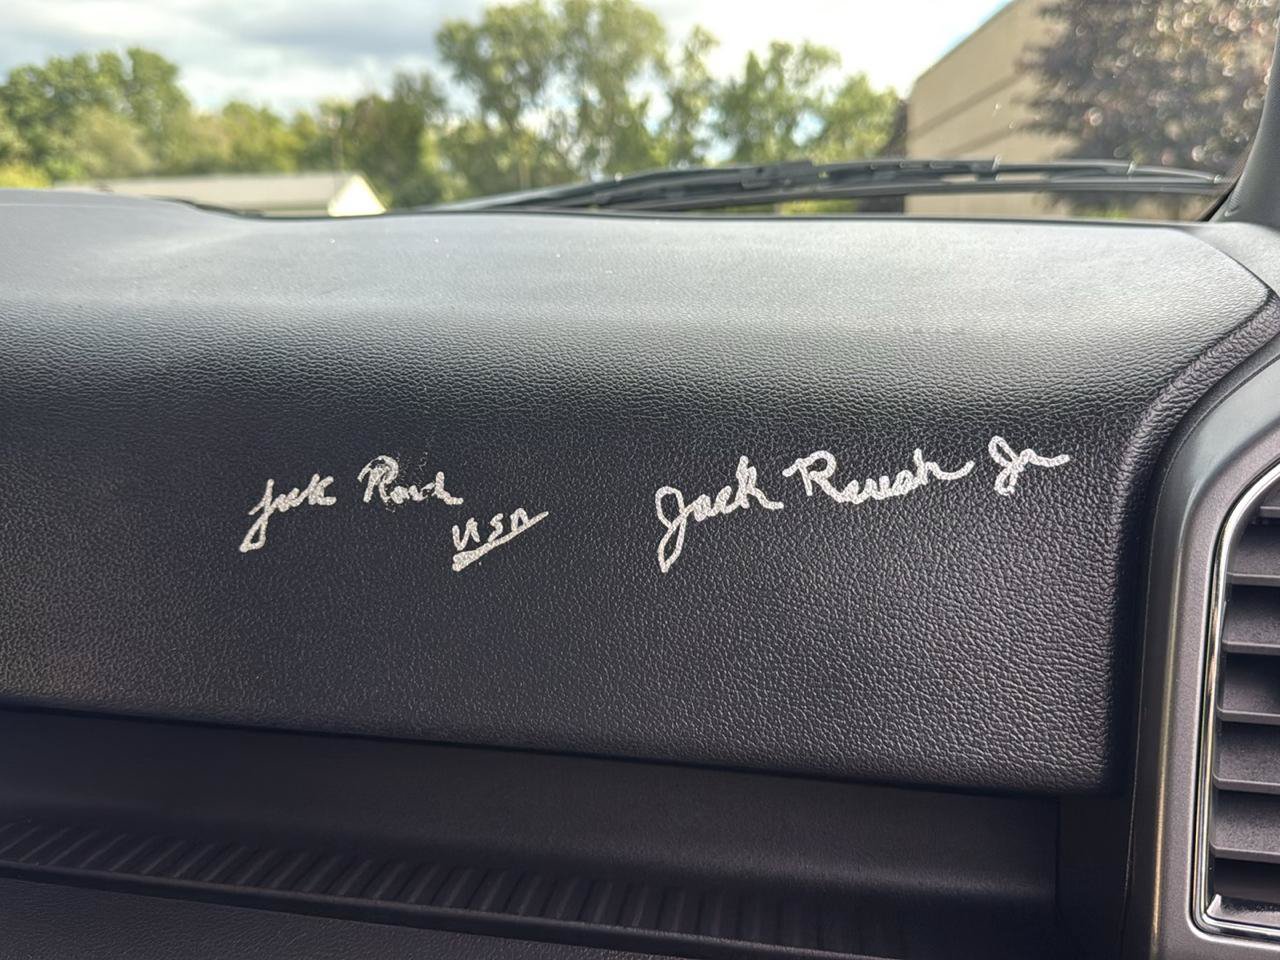 Jack Roush
USA
Jack Roush Jr